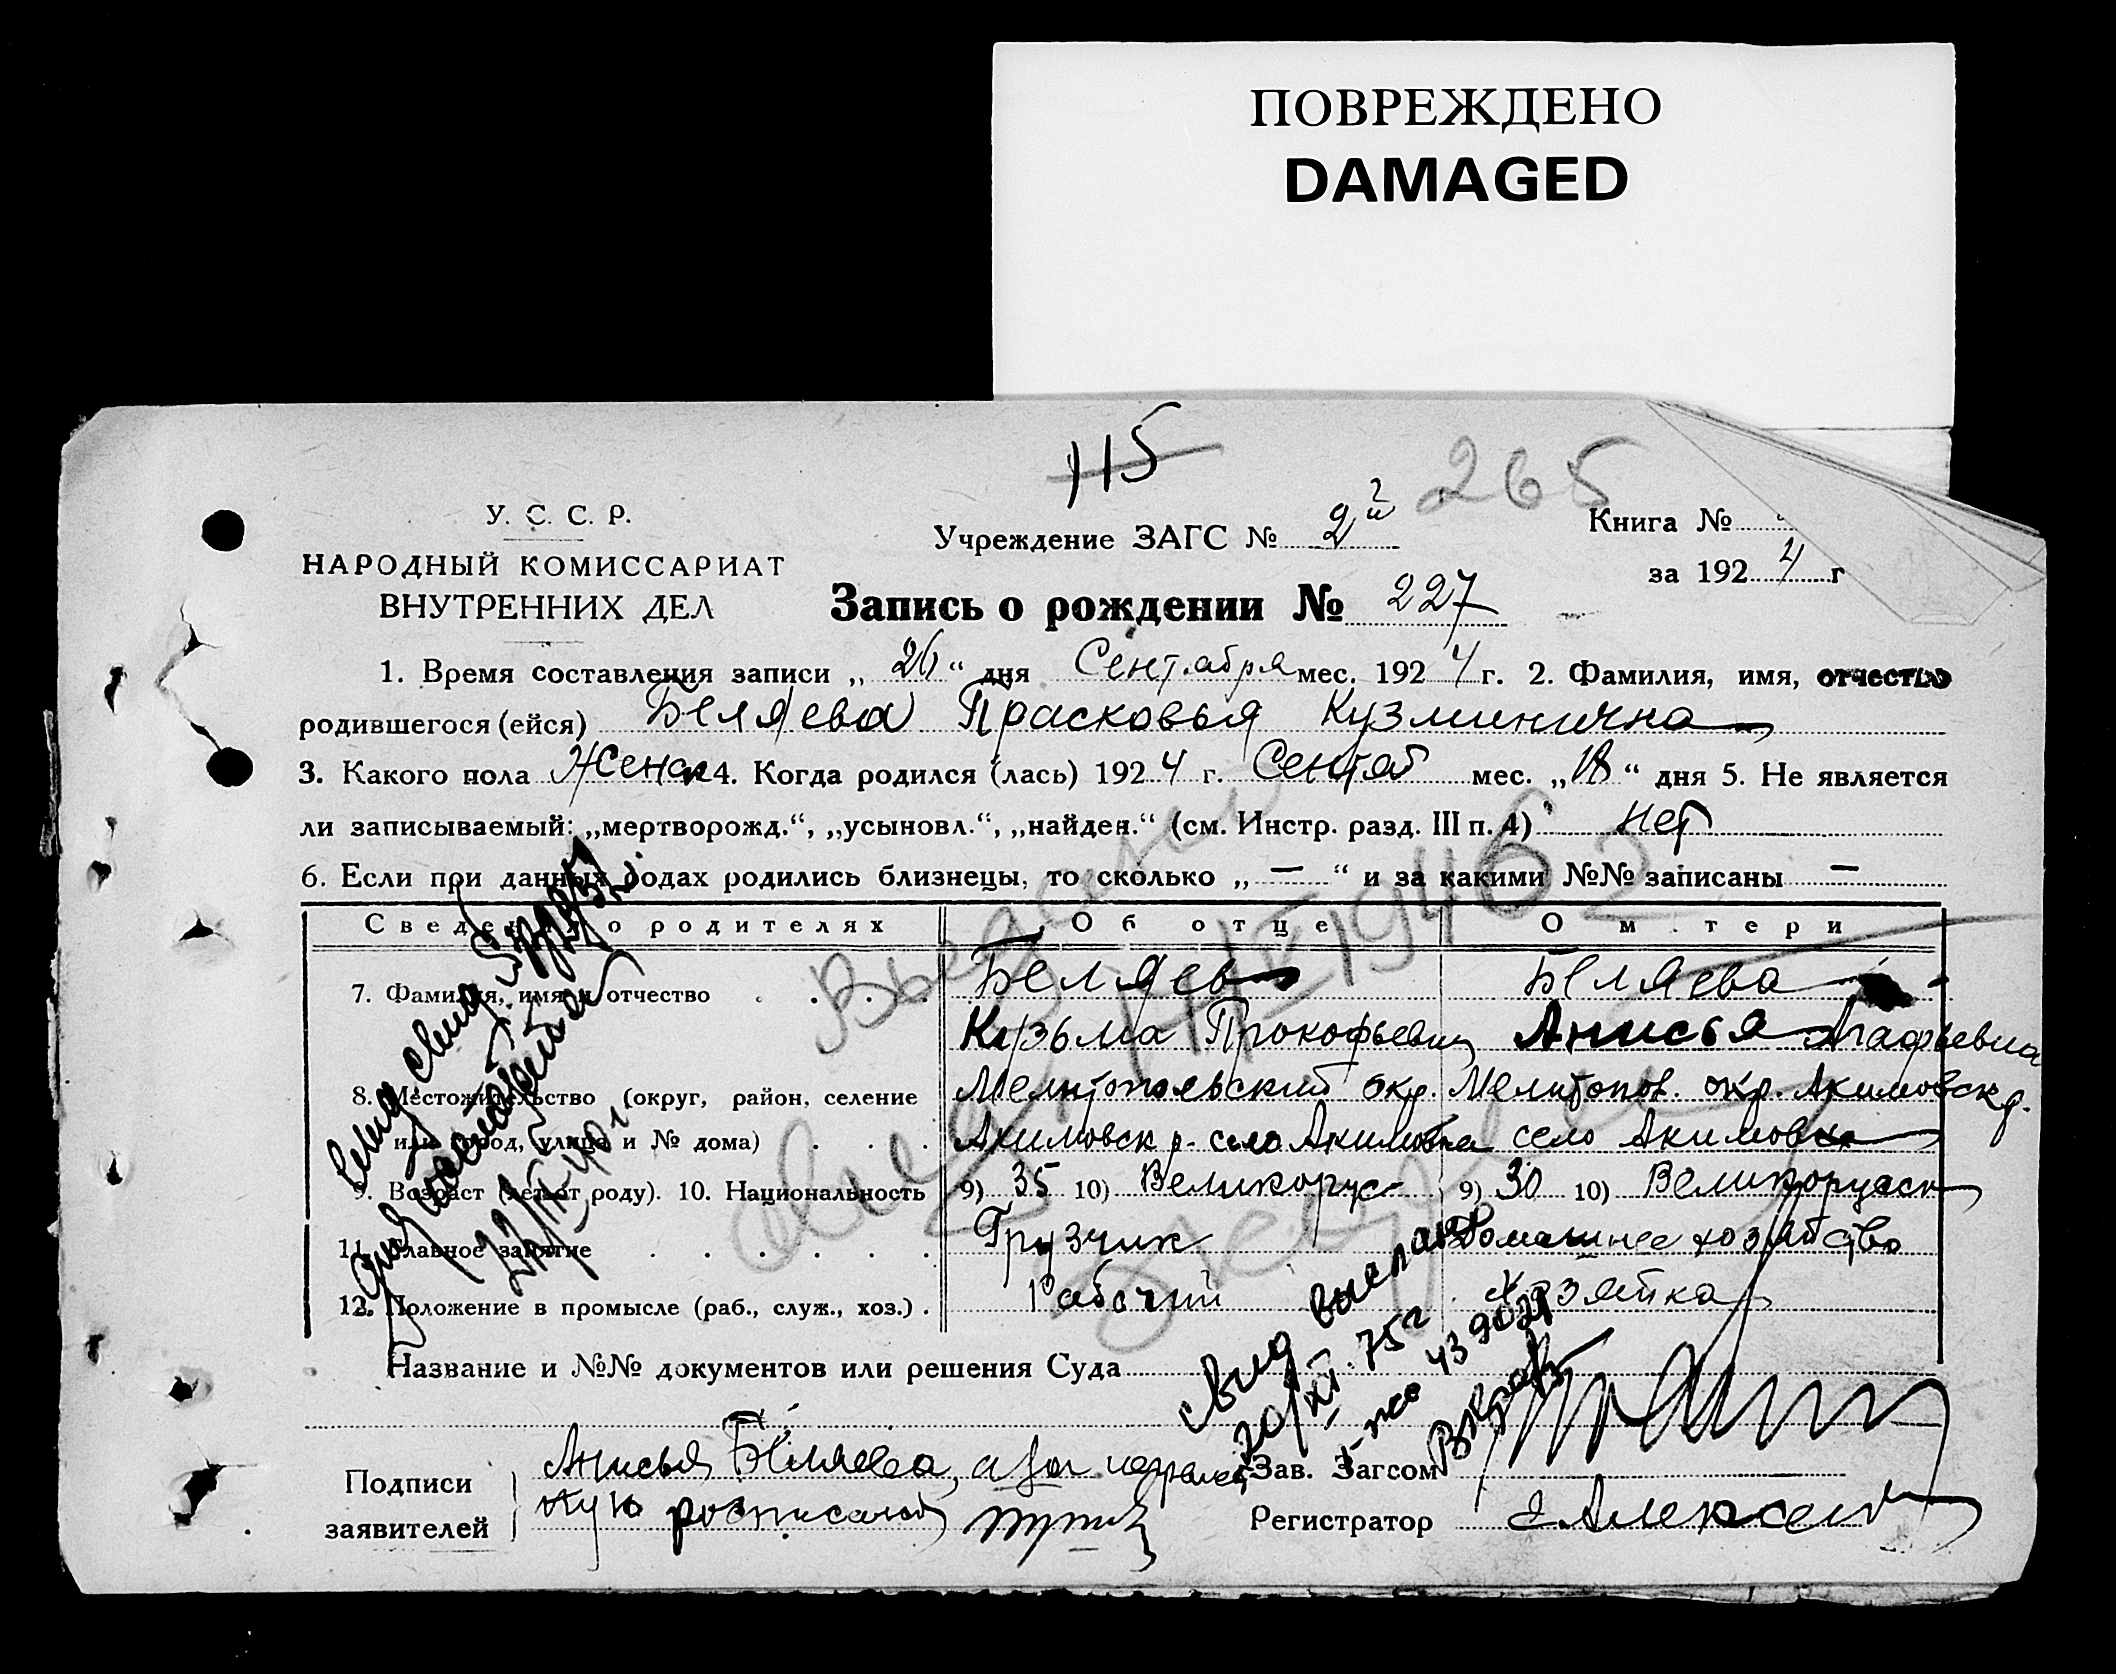 ПОВРЕЖДЕНО
DAMAGED
115
265
У. С. С. Р.
НАРОДНЫЙ КОМИССАРИАТ
ВНУТРЕННИХ ДЕЛ
Учреждение ЗАГС № 2й
Книга №
за 1924 г
Запись о рождении № 227
1. Время составления записи „26“ дня Сентября мес. 1924 г. 2. Фамилия, имя, отчество
родившегося (ейся) Беляева Прасковья Кузминична
3. Какого пола Женск 4. Когда родился (лась) 1924 г. Сентяб мес. „18“ дня 5. Не является
ли записываемый: „мертворожд.“, „усыновл.“, „найден.“ (см. Инстр. разд. III п. 4) нет
6. Если при данных родах родились близнецы, то сколько „—“ и за какими №№ записаны —
Сведения о родителях Об отце О матери
7. Фамилия, имя и отчество Беляев Беляева
Кузьма Прокофьевич Анисья Агафьевна
8. Местожительство (округ, район, селение Мелитопольский окр. Мелитопов. окр. Акимовск р.
или город, улица и № дома) Акимовск р. село Акимовка село Акимовка
9. Возраст (лет от роду). 10. Национальность 9) 35 10) Великорус 9) 30 10) Великорусск
11. Главное занятие Грузчик Домашнее хозяйство
12. Положение в промысле (раб., служ., хоз.) Рабочий Хозяйка
Название и №№ документов или решения Суда
свид выслано
20/XI 75г
Подписи
заявителей
Анисья Беляева, а за неграмот
ную росписался
Зав. Загсом
Регистратор Алексеев